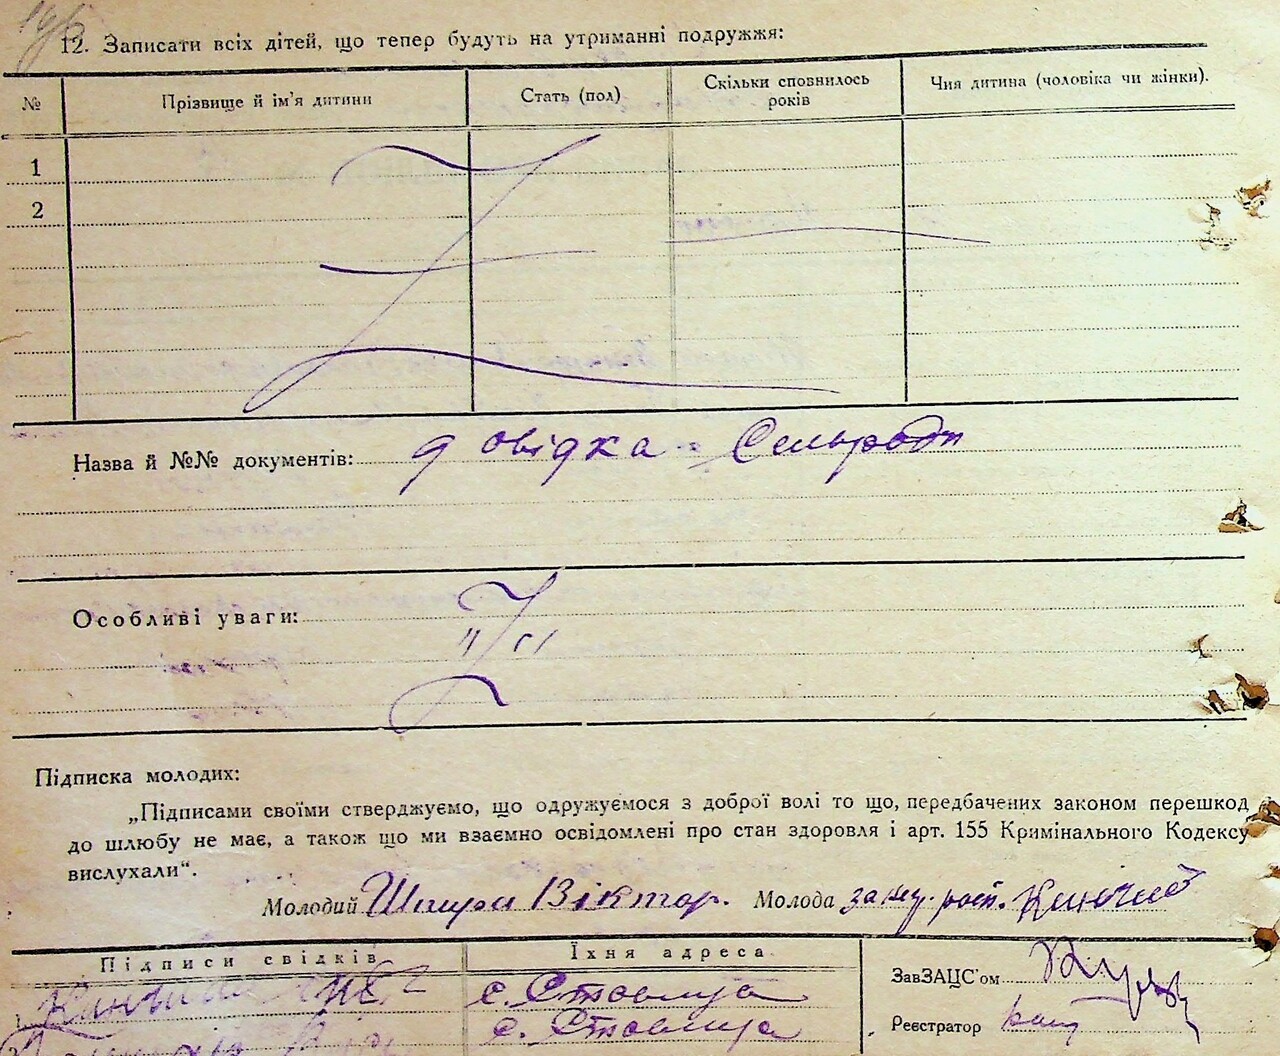 12. Записати всіх дітей, що тепер будуть на утриманні подружжя:
№ Прізвище й ім'я дитини Стать (пол) Скільки сповнилось років Чия дитина (чоловіка чи жінки).
1
2
Назва й №№ документів: довідка Сельради
Особливі уваги:
Підписка молодих:
„Підписами своїми стверджуємо, що одружуємося з доброї волі то що, передбачених законом перешкод
до шлюбу не має, а також що ми взаємно освідомлені про стан здоровля і арт. 155 Кримінального Кодексу
вислухали“.
Молодий Віктор. Молода за
Підписи свідків Їхня адреса
с. Ставища ЗавЗАЦС'ом
с. Ставища Реєстратор